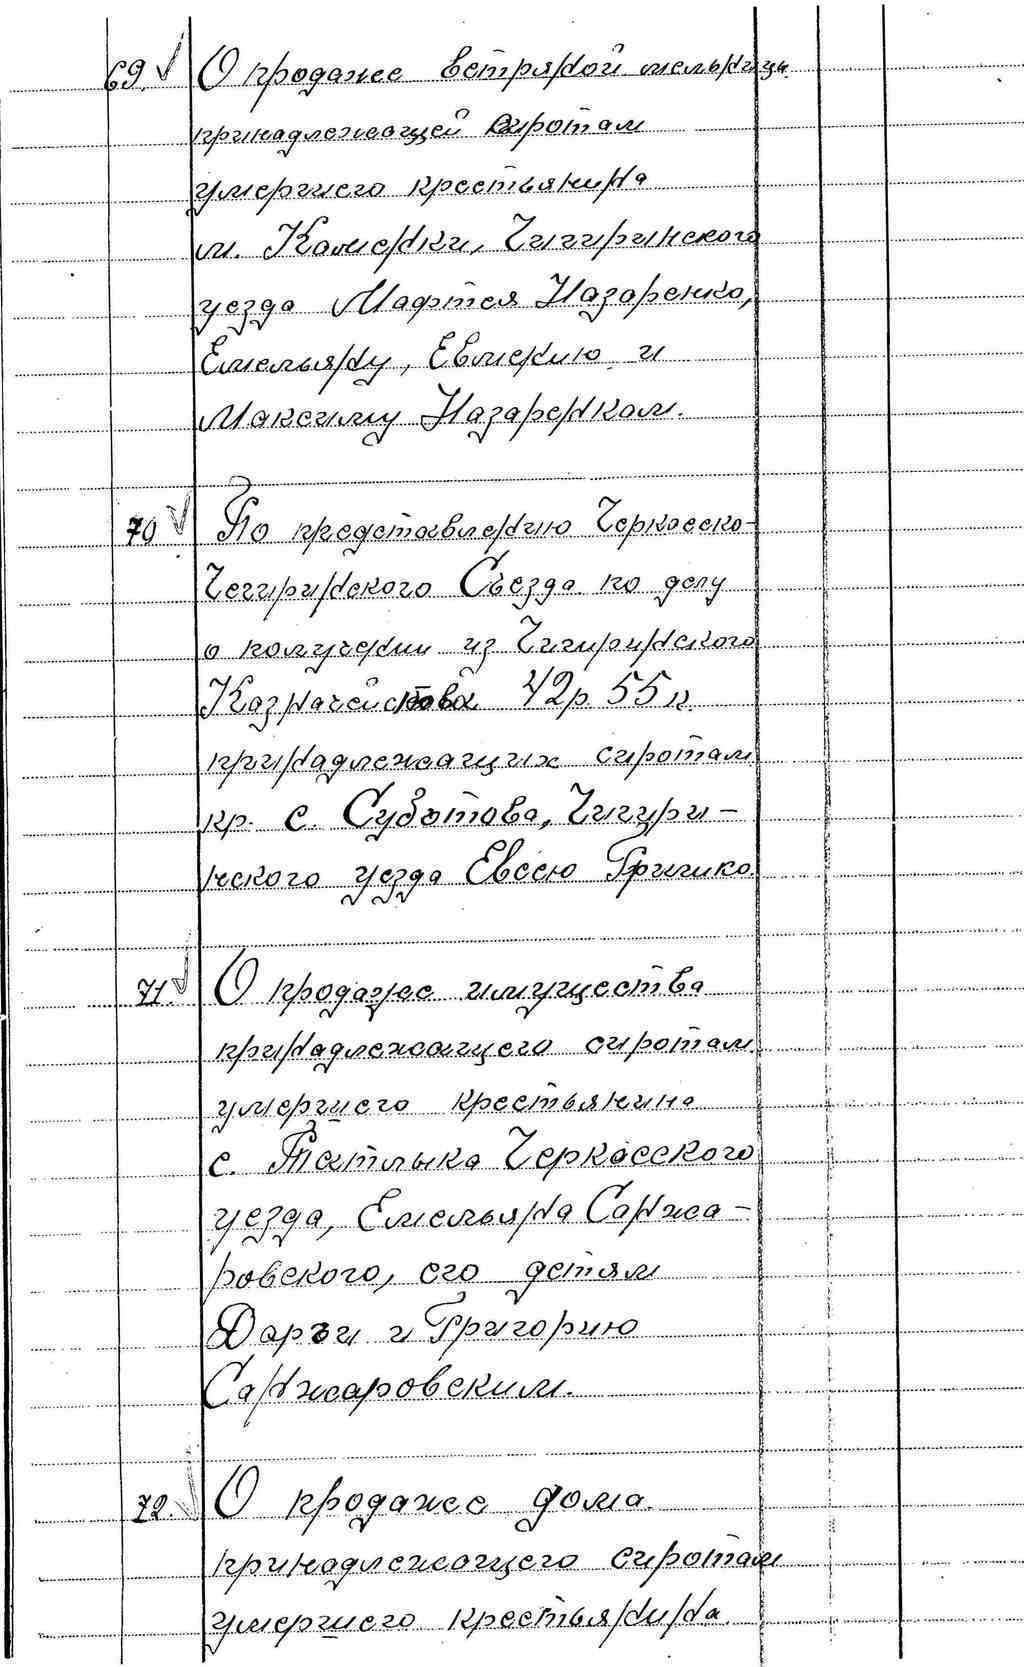 69. О продаже ветряной мельницы
принадлежащей сиротам
умершего крестьянина
м. Каменки, Чигиринского
уезда Мафтея Назаренко,
Емельяну, Евмению и
Максиму Назаренком.
70 По представлению Черкасско-
Чегиринского Съезда по делу
о получении из Чигиринского
Казначейства 42р. 55к.
принадлежащих сиротам
кр. с. Суботова, Чигири-
нского уезда Евсею Гричико.
71. О продаже имущества
принадлежащего сиротам
умершего крестьянина
с. Татлыка Черкасского
уезда, Емельяна Санжа-
ровского, его детям
Дарьи и Григорию
Санжаровским.
72. О продаже дома
принадлежащего сиротам
умершего крестьянина